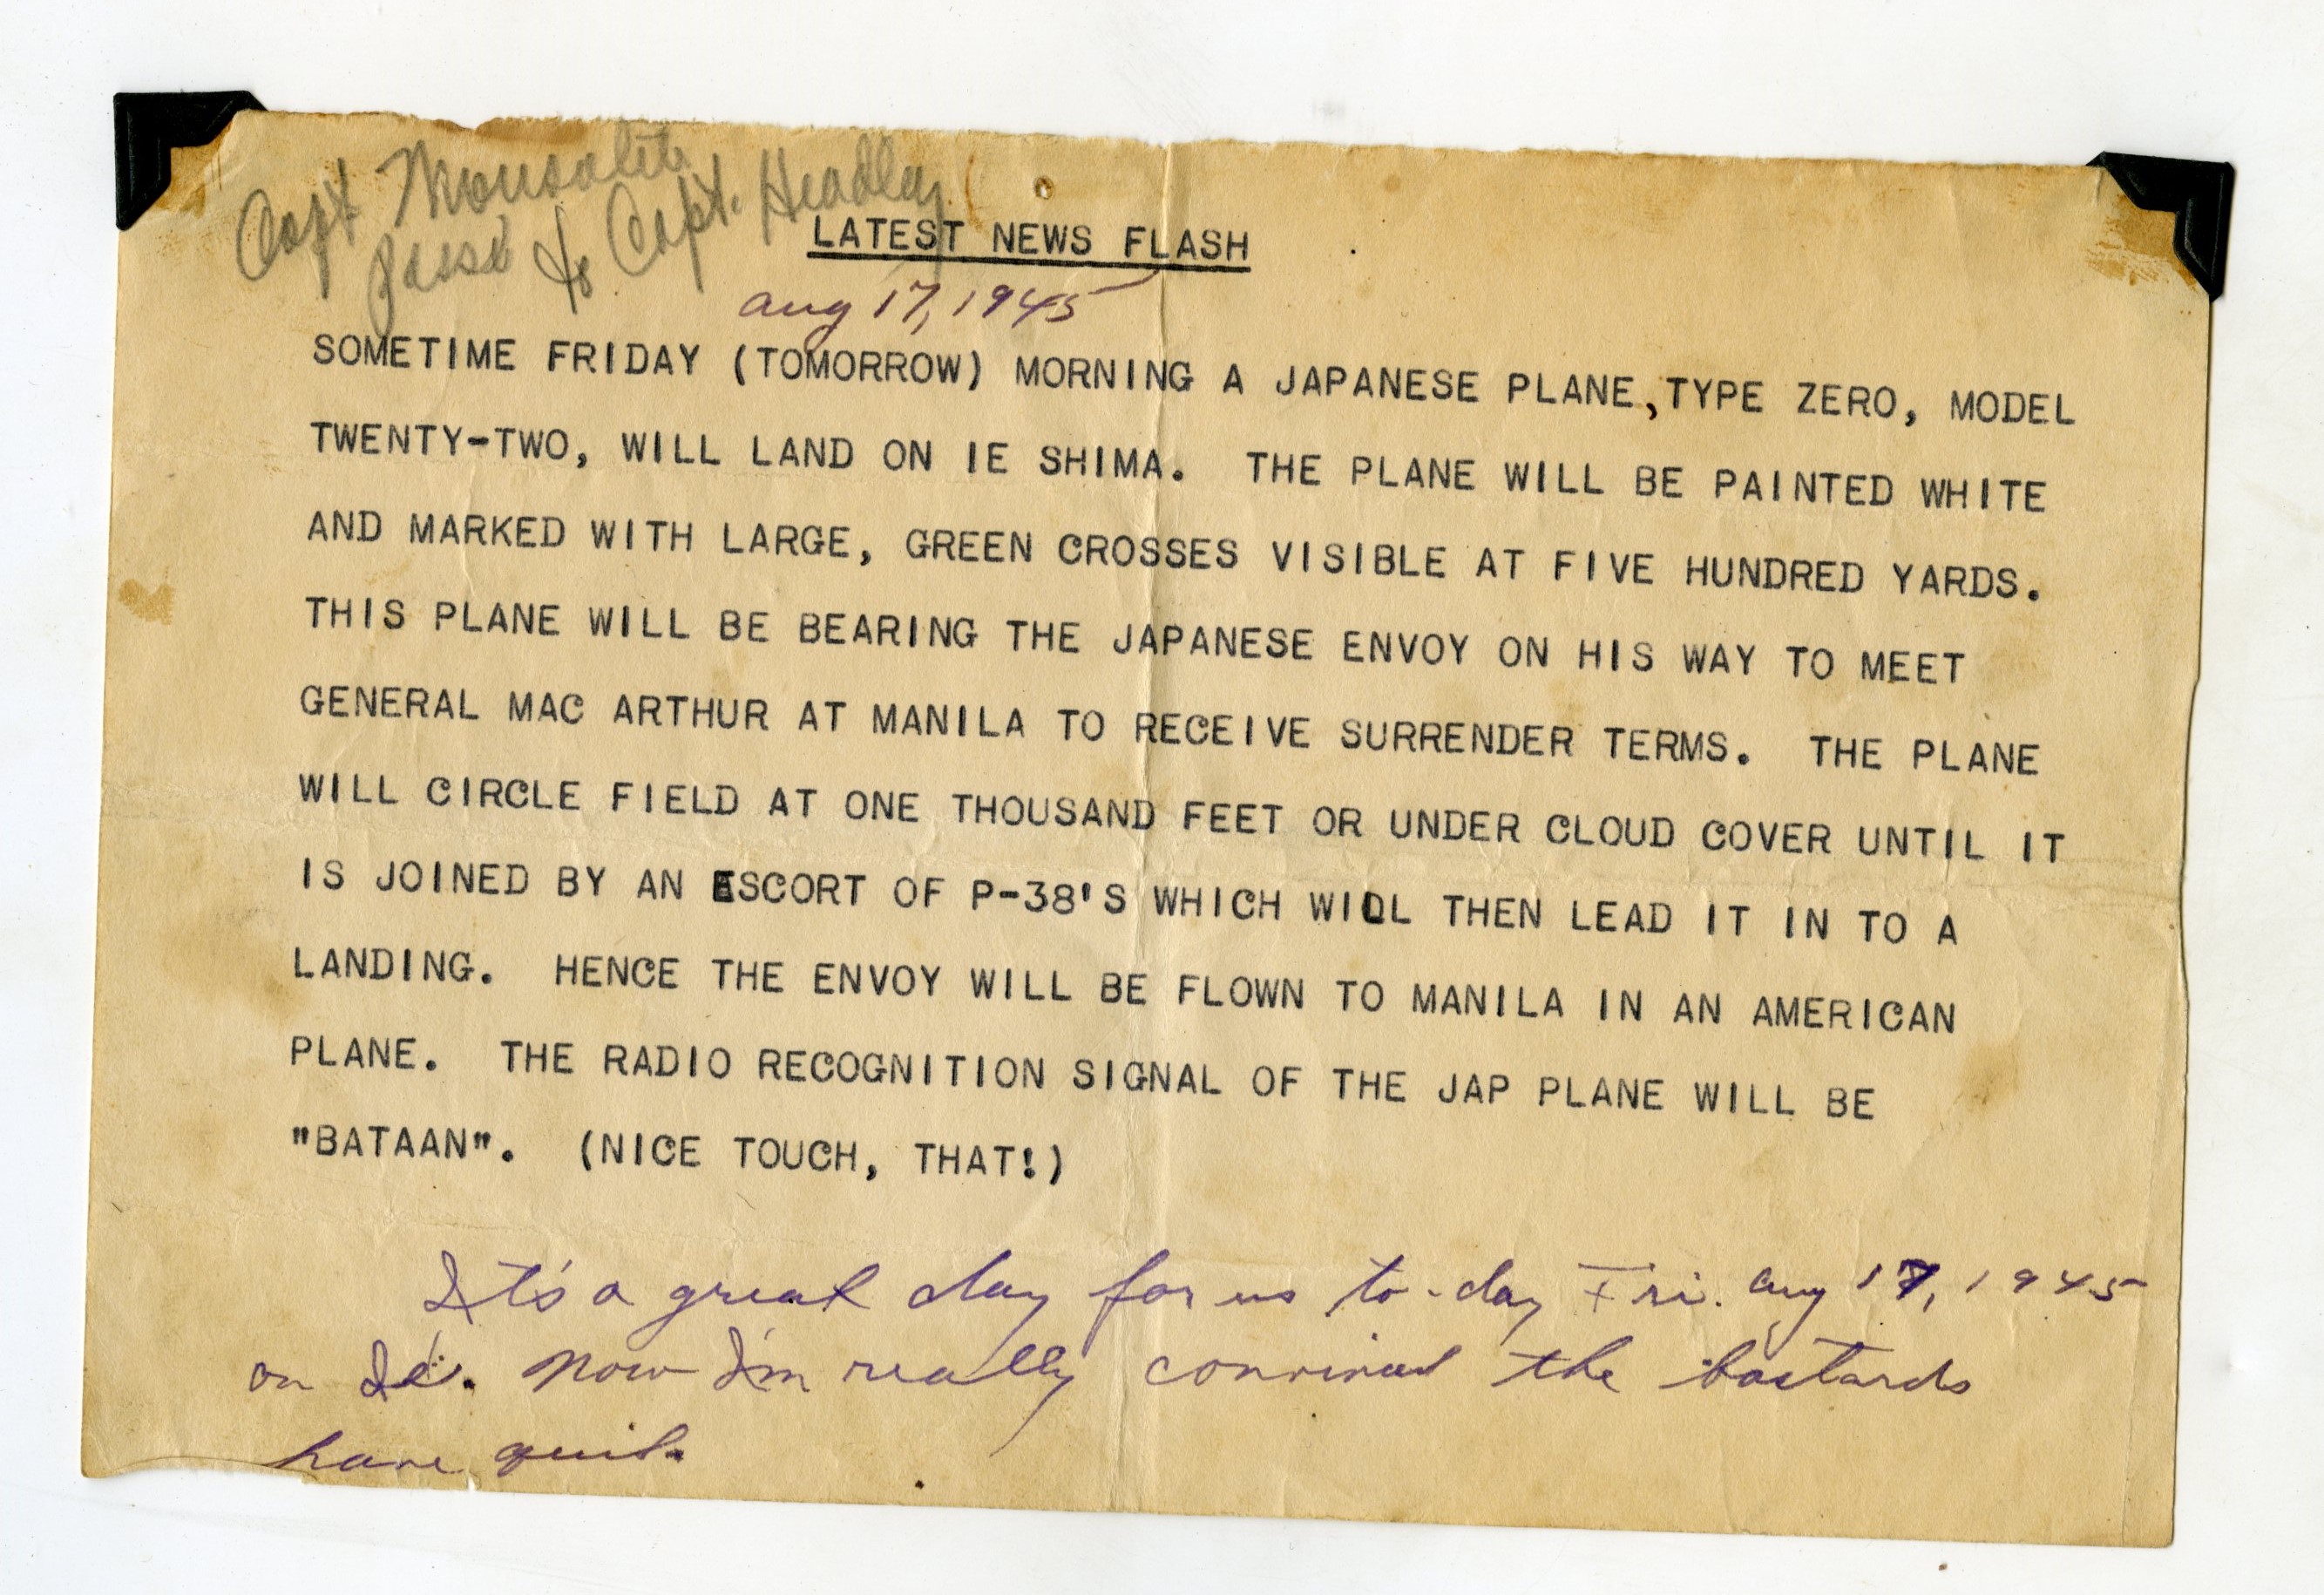 Capt.
Pass to Capt. Headley
LATEST NEWS FLASH
Aug 17, 1945
SOMETIME FRIDAY (TOMORROW) MORNING A JAPANESE PLANE, TYPE ZERO, MODEL
TWENTY-TWO, WILL LAND ON IE SHIMA. THE PLANE WILL BE PAINTED WHITE
AND MARKED WITH LARGE, GREEN CROSSES VISIBLE AT FIVE HUNDRED YARDS.
THIS PLANE WILL BE BEARING THE JAPANESE ENVOY ON HIS WAY TO MEET
GENERAL MAC ARTHUR AT MANILA TO RECEIVE SURRENDER TERMS. THE PLANE
WILL CIRCLE FIELD AT ONE THOUSAND FEET OR UNDER CLOUD COVER UNTIL IT
IS JOINED BY AN ESCORT OF P-38'S WHICH WILL THEN LEAD IT IN TO A
LANDING. HENCE THE ENVOY WILL BE FLOWN TO MANILA IN AN AMERICAN
PLANE. THE RADIO RECOGNITION SIGNAL OF THE JAP PLANE WILL BE
"BATAAN". (NICE TOUCH, THAT!)
It's a great day for us to-day Fri. Aug 17, 1945
on Ie. Now I'm really convinced the bastards
have quit.